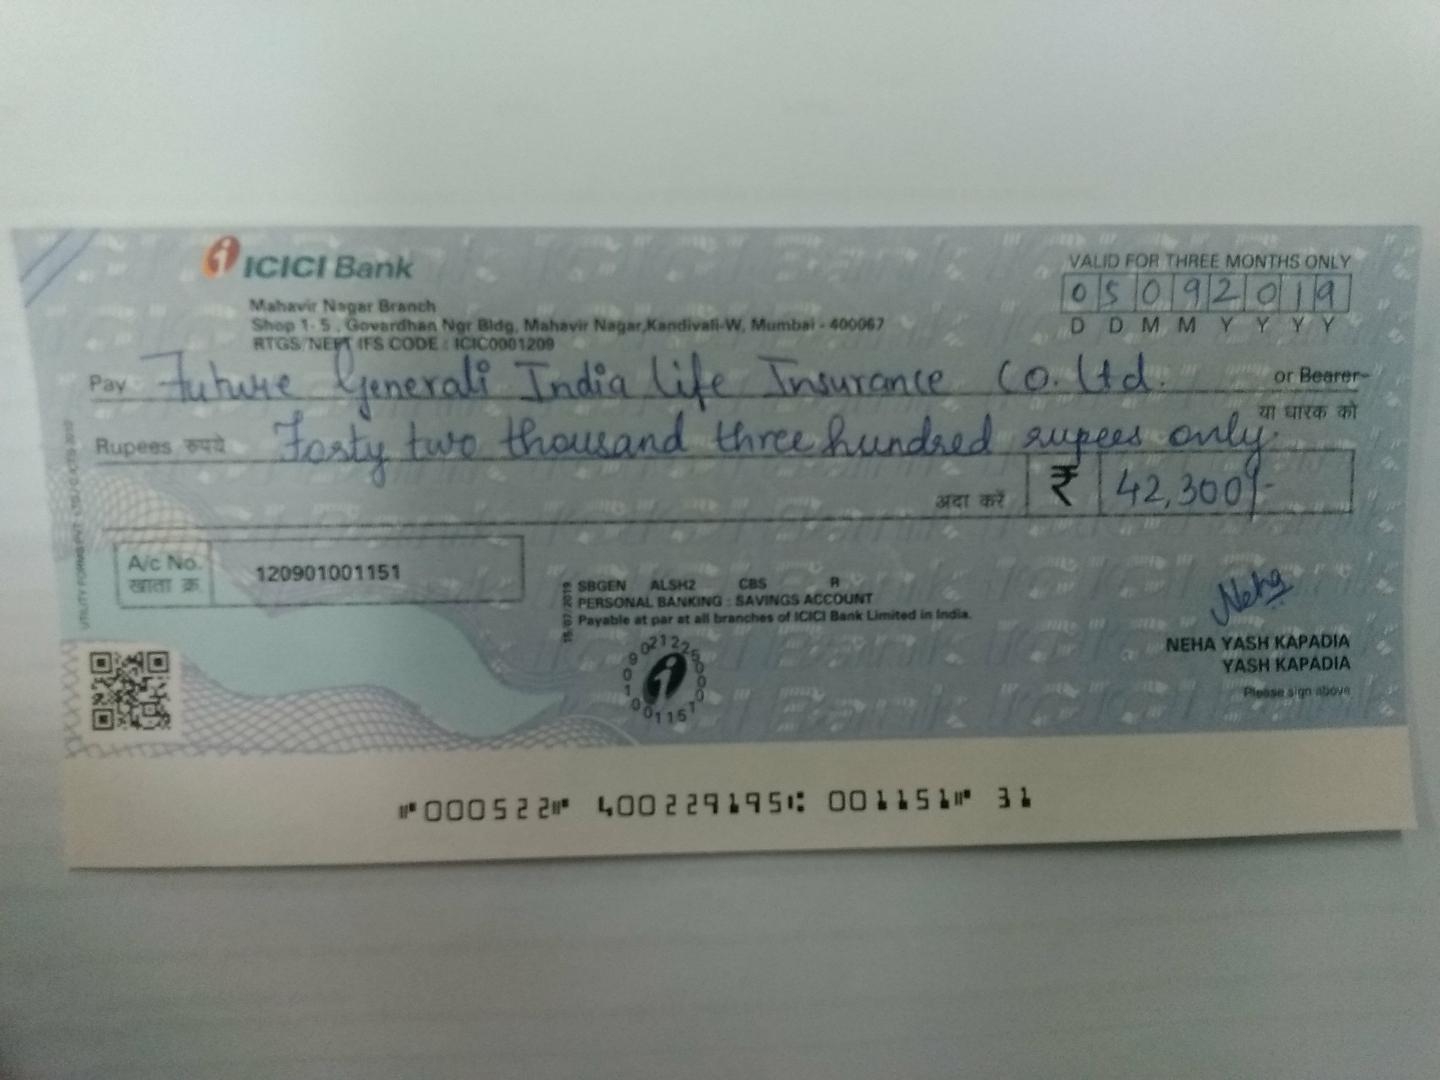 ICICI Bank
Mahavir Nagar Branch
Shop 1- 5 , Govardhan Ngr Bldg, Mahavir Nagar,Kandivali-W, Mumbai - 400067
RTGS/NEFT IFS CODE : ICIC0001209
VALID FOR THREE MONTHS ONLY
05092019
D D M M Y Y Y Y
Pay Future Generali India Life Insurance Co. Ltd. or Bearer
या धारक को
Rupees रुपये Forty two thousand three hundred rupees only.
अदा करें ₹ 42,300/-
A/c No. 120901001151
खाता क्र.
SBGEN ALSH2 CBS R
PERSONAL BANKING : SAVINGS ACCOUNT
Payable at par at all branches of ICICI Bank Limited in India.
Neha
NEHA YASH KAPADIA
YASH KAPADIA
Please sign above
⑈000522⑈ 400229195⑆ 001151⑈ 31